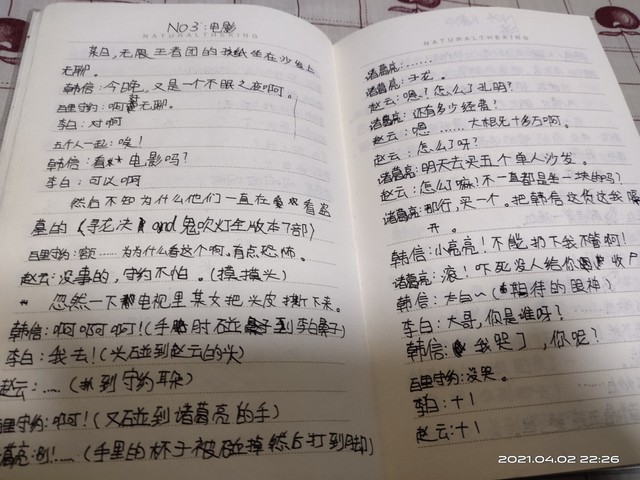 NO3:电影
NATURALTHEKING
某日,无限王者团的孩纸坐在沙发上
无聊。
韩信:今晚,又是一个不眠之夜啊。
百里守约:啊,无聊。
李白:对啊
五个人一起:唉!
韩信:看电影吗?
李白:可以啊
然后不知为什么他们一直在看盗
墓的《寻龙决》and《鬼吹灯全版本7部》
百里守约:……为为什么看这个啊。有点恐怖。
赵云:没事的,守约不怕。(摸摸头)
忽然一下电视里某女把头皮撕下来。
韩信:啊啊啊啊!(手肘碰到李白鼻子)
李白:我去!(头碰到赵云的头)
赵云:……(扒到守约耳朵)
百里守约:啊!(又碰到诸葛亮的手)
诸葛亮:!……(手里的杯子被碰掉然后打到脚)
NATURALTHEKING
诸葛亮:……
诸葛亮:子龙。
赵云:嗯?怎么了孔明?
诸葛亮:还有多少经费?
赵云:嗯……大概几十多万啊。
赵云:怎么了呀?
诸葛亮:明天去买五个单人沙发。
赵云:怎么了嘛?不一直都是坐一块的吗?
诸葛亮:那行,买一个。把韩信这货这我隔
开。
韩信:小亮亮!不能扔下我不管啊!
诸葛亮:滚!吓死没人给你收尸
韩信:大白~(期待的眼神)
李白:大哥,你是谁呀?
韩信:我哭了,你呢?
百里守约:没哭。
李白:十1
赵云:十1
2021.04.02 22:26